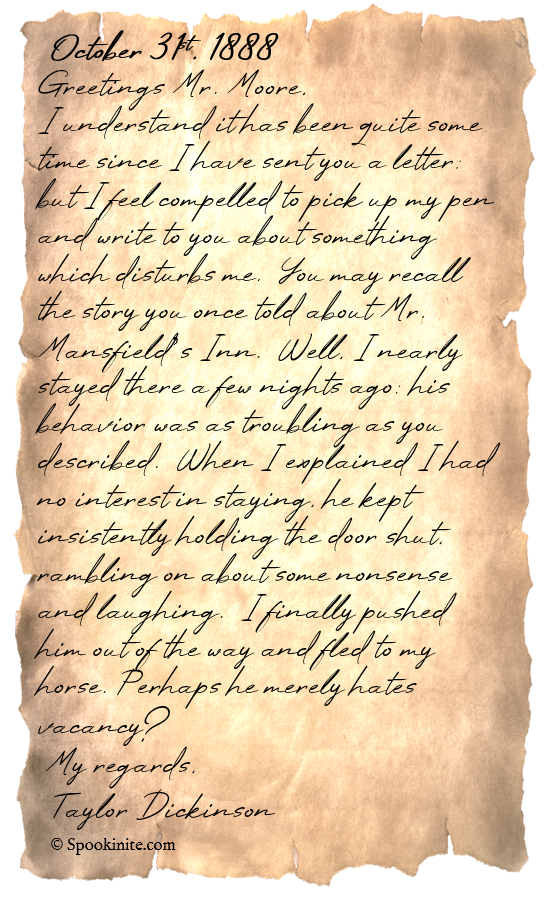 October 31st, 1888
Greetings Mr. Moore,
I understand it has been quite some
time since I have sent you a letter;
but I feel compelled to pick up my pen
and write to you about something
which disturbs me. You may recall
the story you once told about Mr.
Mansfield's Inn. Well, I nearly
stayed there a few nights ago; his
behavior was as troubling as you
described. When I explained I had
no interest in staying, he kept
insistently holding the door shut,
rambling on about some nonsense
and laughing. I finally pushed
him out of the way and fled to my
horse. Perhaps he merely hates
vacancy?
My regards,
Taylor Dickinson
© Spookinite.com